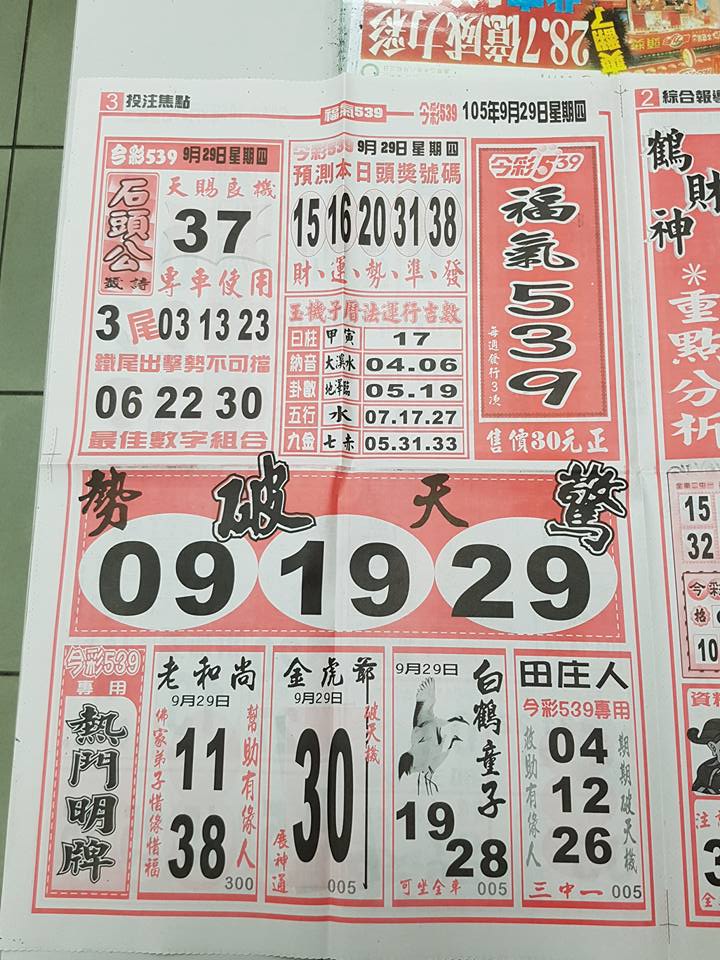 28.7億威力彩
3 投注焦點
福氣539
今彩539 105年9月29日星期四
今彩539 9月29日星期四
石頭公
天賜良機
37
專車使用
3尾03 13 23
鐵尾出擊勢不可擋
06 22 30
最佳數字組合
今彩539 9月29日星期四
預測本日頭獎號碼
15 16 20 31 38
財、運、勢、準、發
玉機子曆法運行吉數
日柱 甲寅 17
納音 大溪水 04.06
卦數 地澤臨 05.19
五行 水 07.17.27
九金 七赤 05.31.33
今彩539
福氣539
每週發行3次
售價30元正
勢破天驚
09 19 29
今彩539
專用
熱門明牌
老和尚
9月29日
佛家弟子惜緣惜福
11
38
幫助有緣人
300
金虎爺
9月29日
破天機
30
展神通
005
9月29日
白鶴童子
19
28
可坐全車 005
田庄人
今彩539專用
救助有緣人
04
12
26
期期破天機
三中一 005
2 綜合報導
鶴財神
*重點分析
15
32
今彩
10